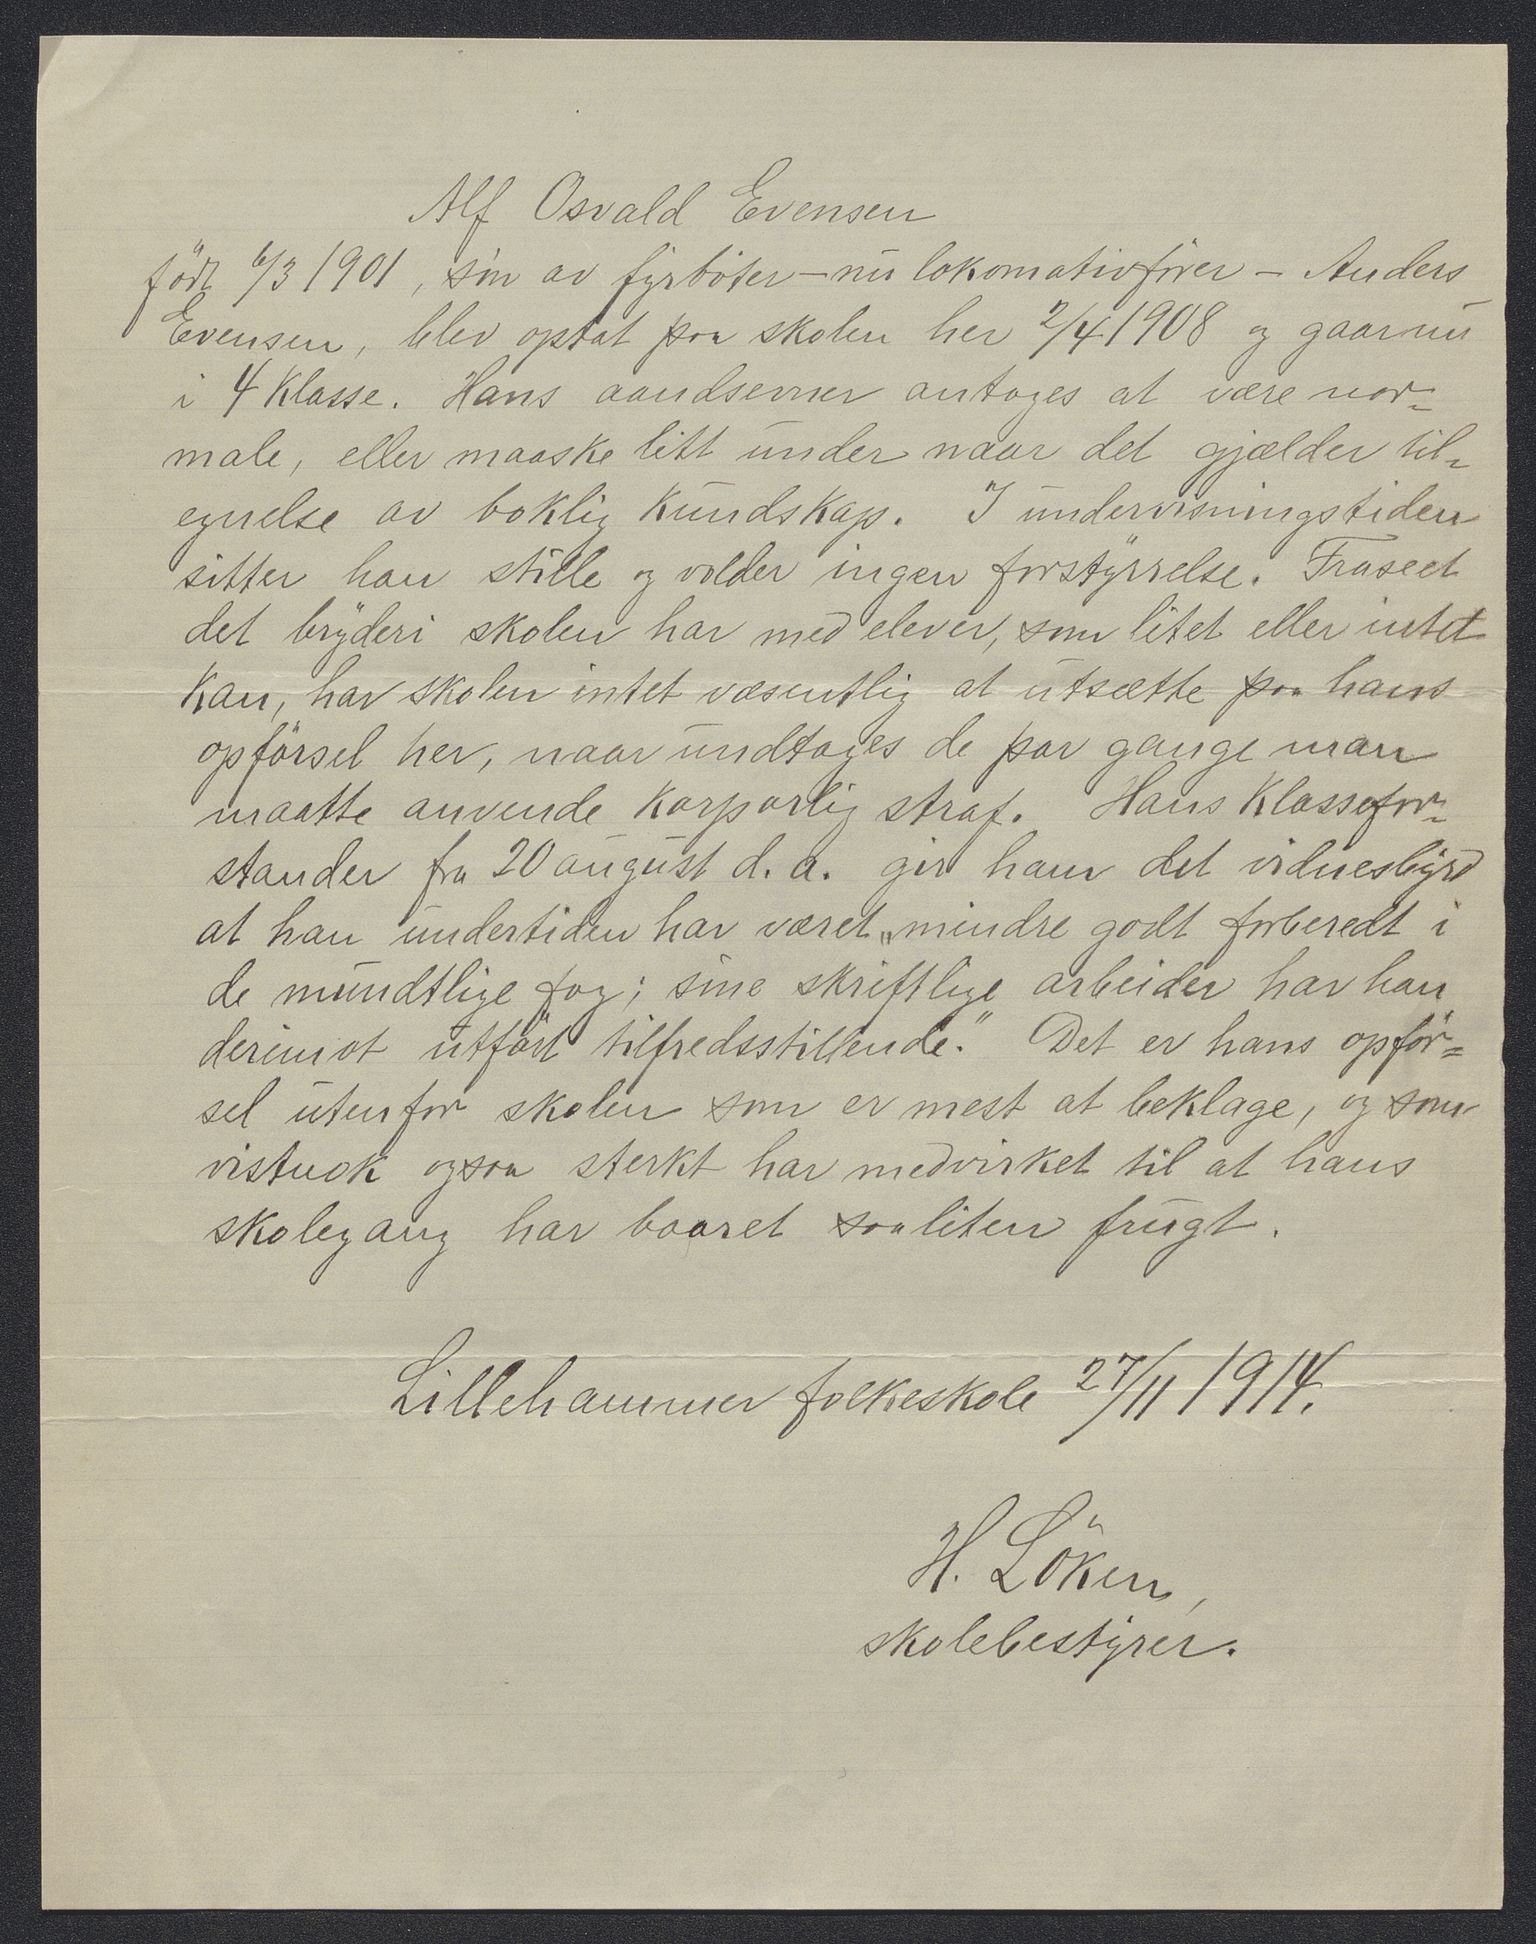 Alf Osvald Evensen
födt 6/3 1901, sön av fyrböter – nu lokomativförer – Anders
Evensen, blev optat paa skolen her 2/4 1908 og gaar nu
i 4 klasse. Hans aandsevner antages at være nor-
male, eller maaske litt under naar det gjælder til-
egnelse av boklig kundskap. I undervisningstiden
sitter han stille og volder ingen forstyrrelse. Fraseet
det bryderi skolen har med elever, som litet eller intet
kan, har skolen intet væsentlig at utsætte paa hans
opförsel her, naar undtages de par gange man
maatte anvende korporlig straf. Hans klassefor-
stander fra 20 august d. a. gir ham det vidnesbyrd
at han undertiden har været „mindre godt forberedt i
de mundtlige fag; sine skriftlige arbeider har han
derimot utfört tilfredsstillende." Det er hans opför-
sel utenfor skolen som er mest at beklage, og som
vistnok ogsaa sterkt har medvirket til at hans
skolegang har baaret saa liten frugt.
Lillehammer folkeskole 27/11 1914.
H. Löken,
skolebestyrer.